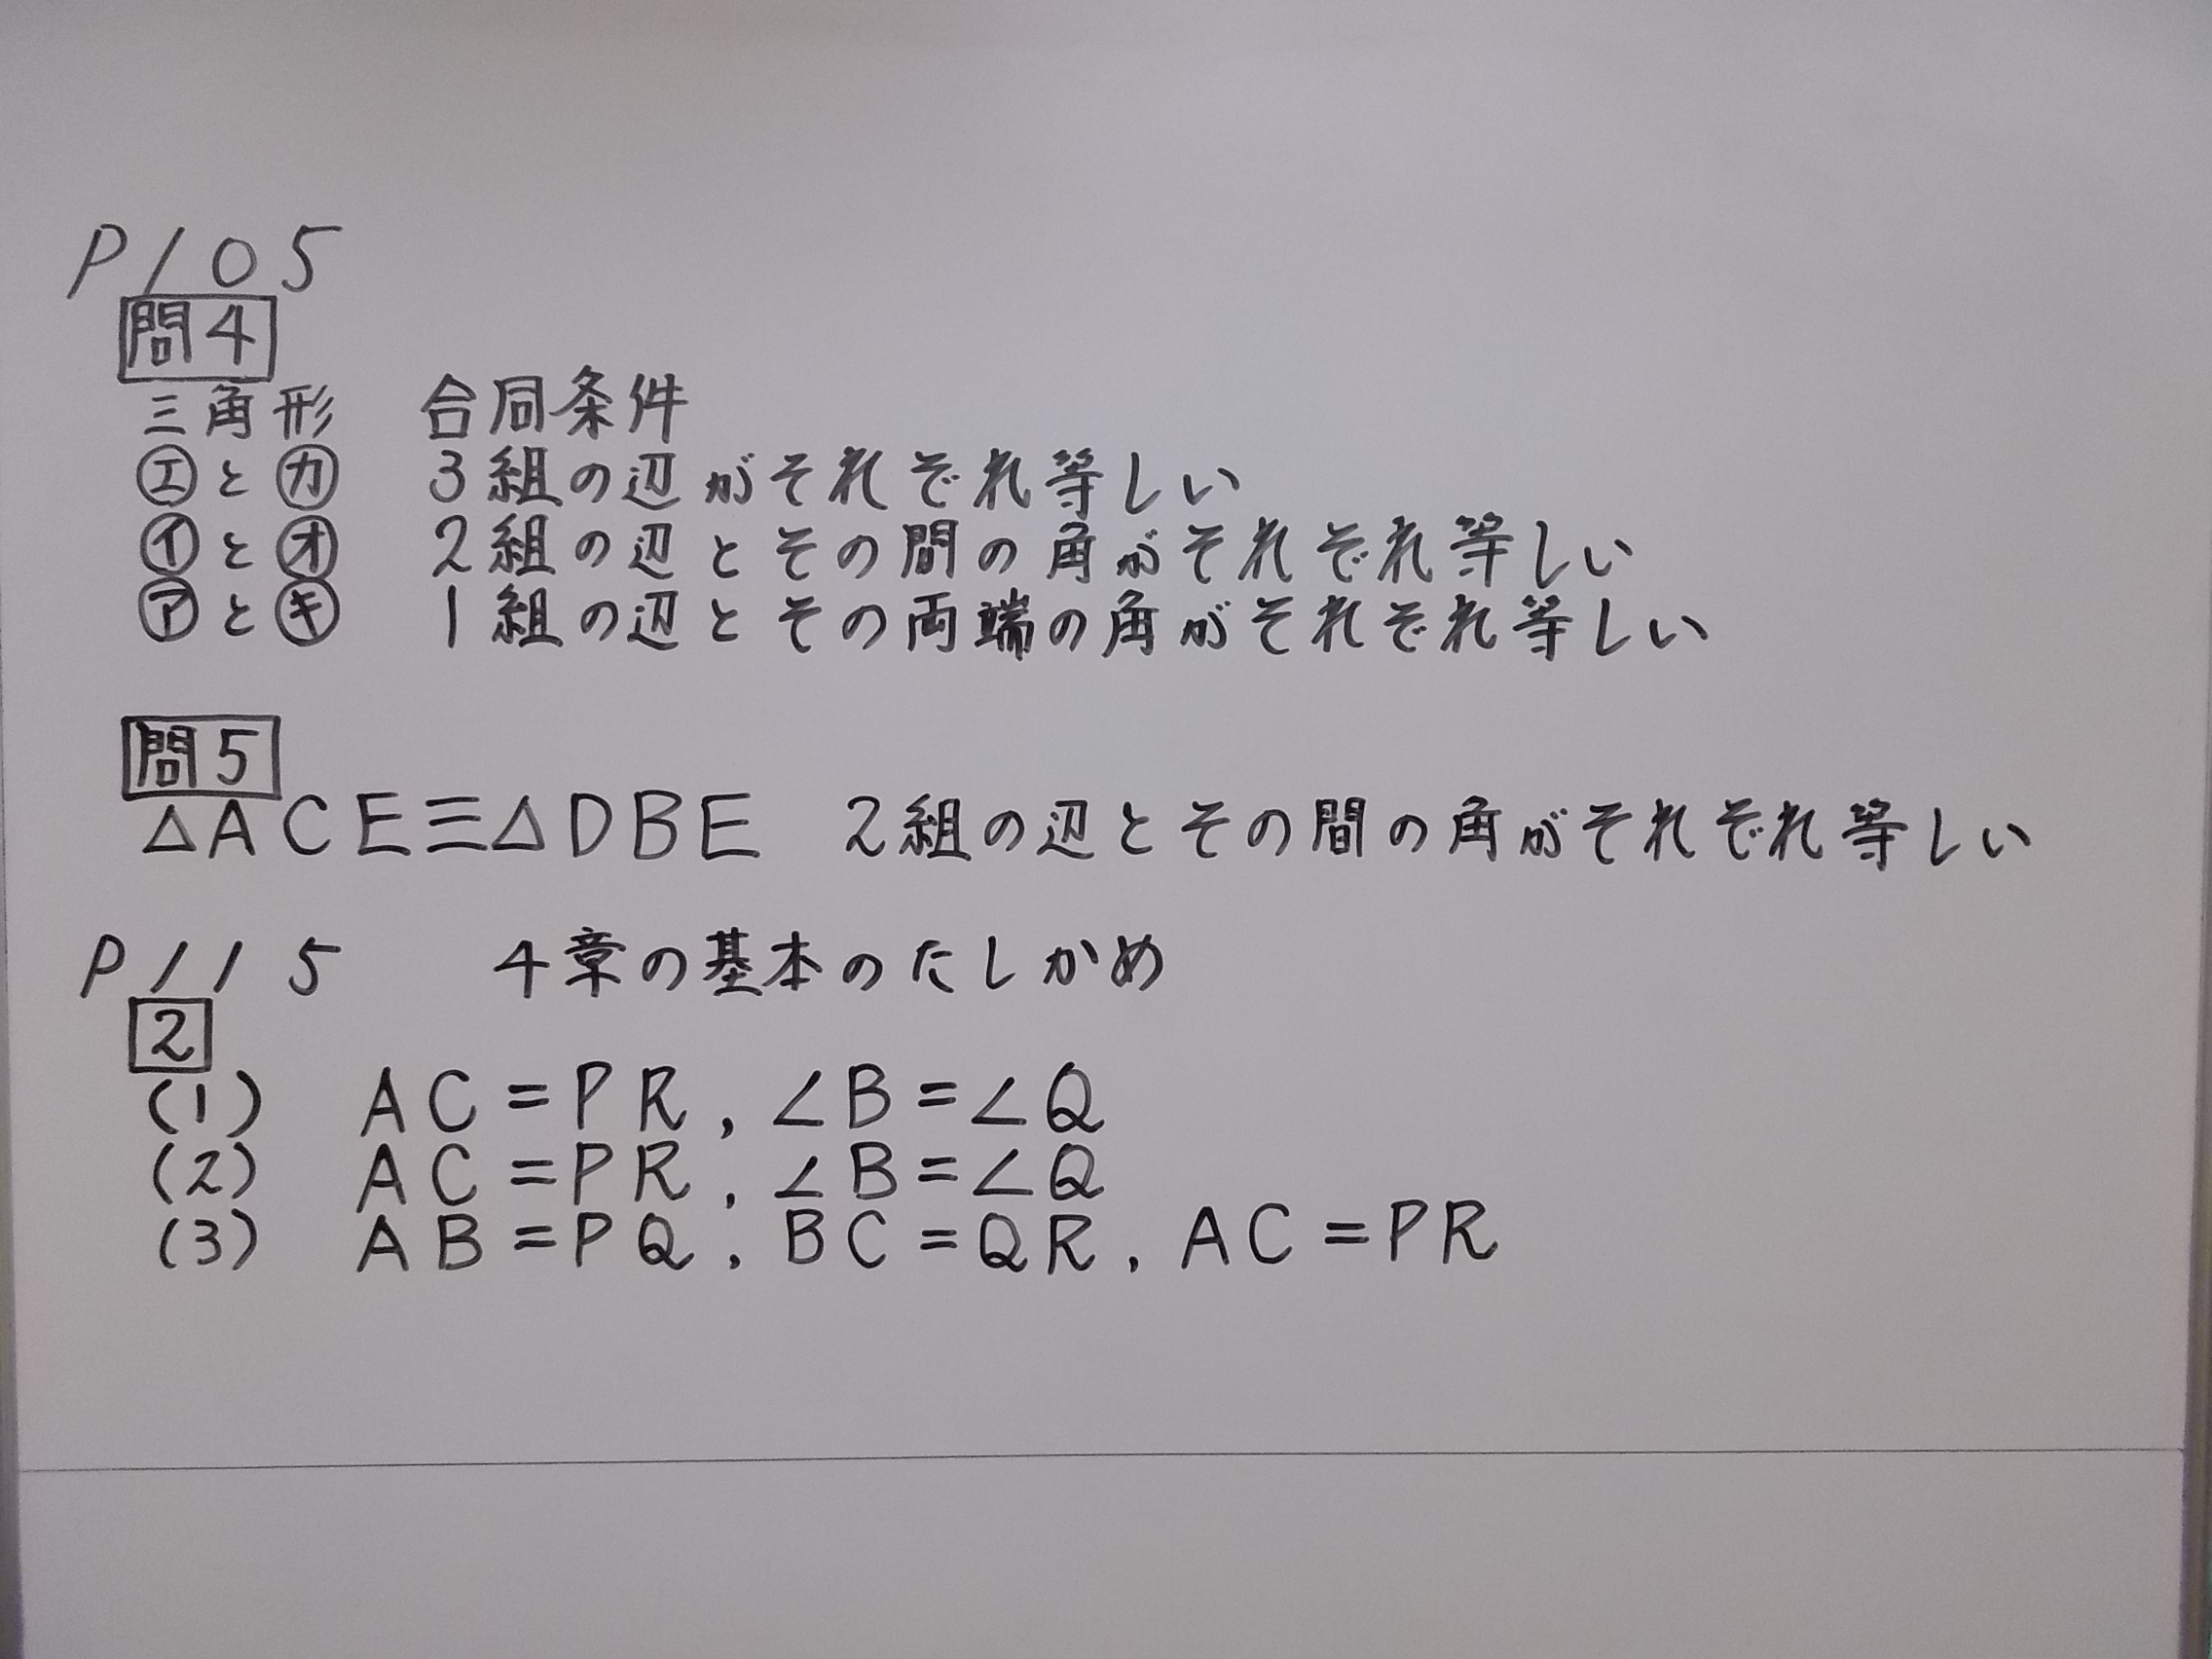 P105
問4
三角形 合同条件
㋓と㋕ 3組の辺がそれぞれ等しい
㋑と㋔ 2組の辺とその間の角がそれぞれ等しい
㋐と㋖ 1組の辺とその両端の角がそれぞれ等しい
問5
△ACE≡△DBE 2組の辺とその間の角がそれぞれ等しい
P115 4章の基本のたしかめ
2
(1) AC=PR, ∠B=∠Q
(2) AC=PR, ∠B=∠Q
(3) AB=PQ, BC=QR, AC=PR